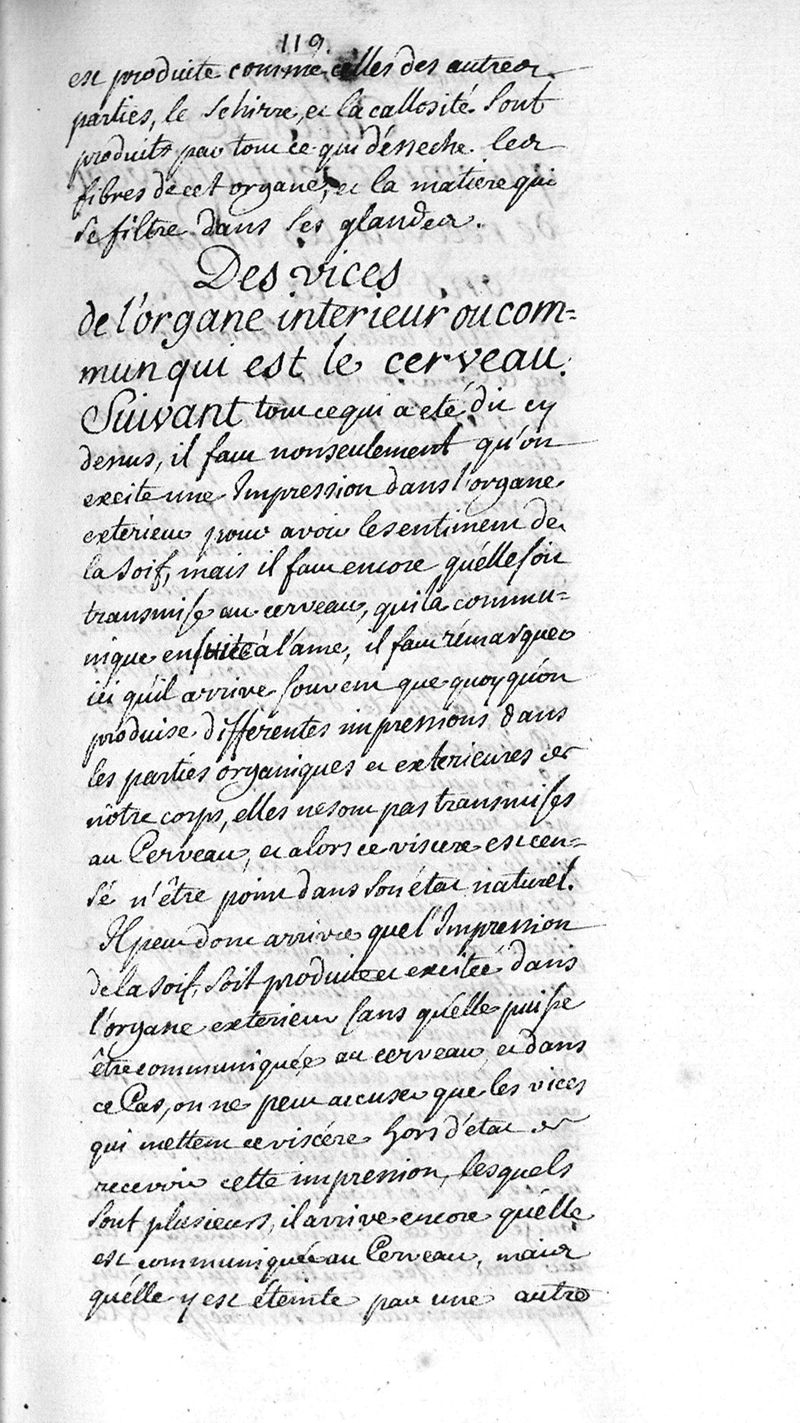 119.
est produite comme celles des autres
parties, le schirre, et la callosité sont
produits par tout ce qui désseche les
fibres de cet organe, et la matière qui
se filtre dans ses glandes.
Des vices
de l'organe interieur ou com=
mun qui est le cerveau.
Suivant tout ce qui a eté dit cy
dessus, il faut nonseulement qu'on
excite une Impression dans l'organe
exterieur pour avoir le sentiment de
la soif, mais il faut encore quélle soit
transmise au cerveau, qui la commu=
nique ensuite à l'ame, il faut rémarquer
ici qu'il arrive souvent que quoy qu'on
produise differentes impressions dans
les parties organiques et exterieures de
nôtre corps, elles ne sont pas transmises
au Cerveau, et alors ce viscere est cen=
sé n'être point dans son état naturel.
Il peut donc arriver que l'Impression
de la soif, soit produite et excitée dans
l'organe exterieur sans quélle puisse
être communiquée au cerveau, et dans
ce Cas, on ne peut accuser que les vices
qui mettent ce viscére hors d'état de
recevoir cette impression, lesquels
sont plusieurs, il arrive encore quélle
est communiquée au Cerveau, mais
quélle y est éteinte par une autre